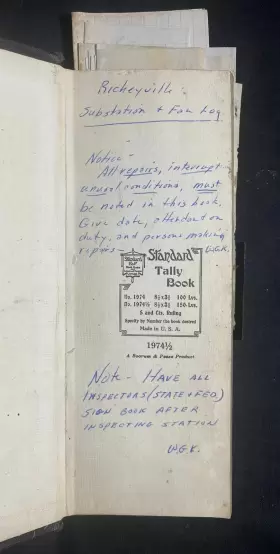 Richeyville
Substation & Fan Log
Notice -
All repairs, interrupt-
unusal conditions, must
be noted in this book.
Give date, attendant on
duty, and persons making
repairs - W.G.K.
Standard
Tally
Book
No. 1974 8½x3½ 100 Lvs.
No. 1974½ 8½x3½ 150 Lvs.
$ and Cts. Ruling
Specify by Number the book desired
Made in U. S. A.
1974½
A Boorum & Pease Product
Note - HAVE ALL
INSPECTORS (STATE & FED)
SIGN BOOK AFTER
INSPECTING STATION
W.G.K.